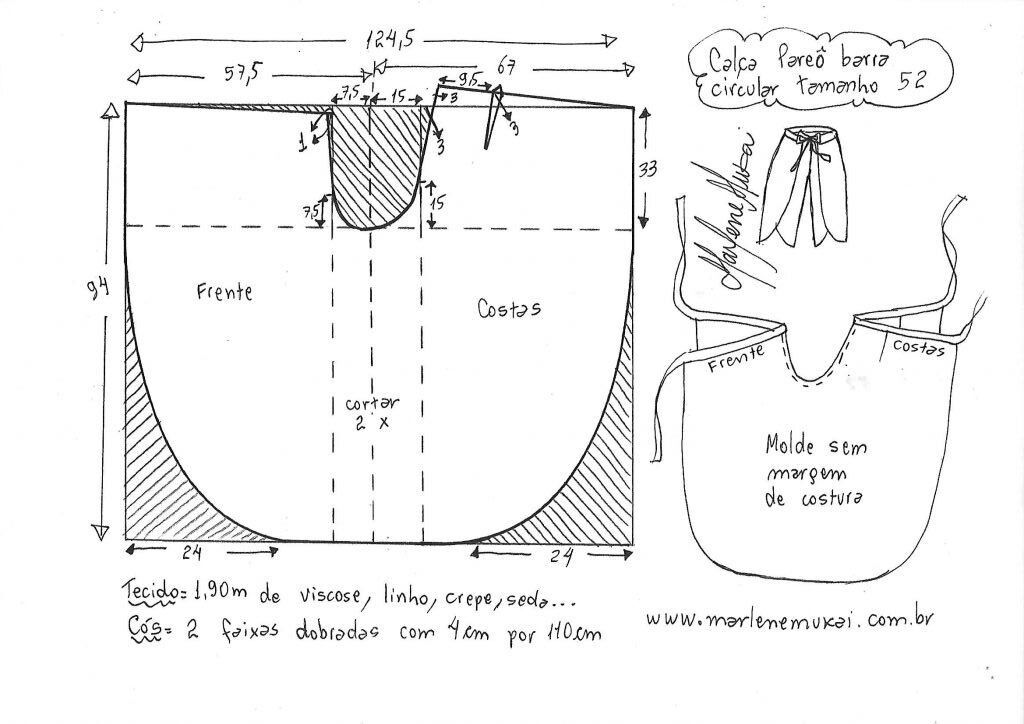 124,5
57,5
67
7,5
15
9,5
3
1
3
3
33
7,5
15
94
Frente
Costas
cortar
2 x
24
24
Calça Pareô barra
circular tamanho 52
Marlene Mukai
Frente
costas
Molde sem
margem
de costura
Tecido = 1,90m de viscose, linho, crepe, seda...
Cós = 2 faixas dobradas com 4cm por 110cm
www.marlenemukai.com.br